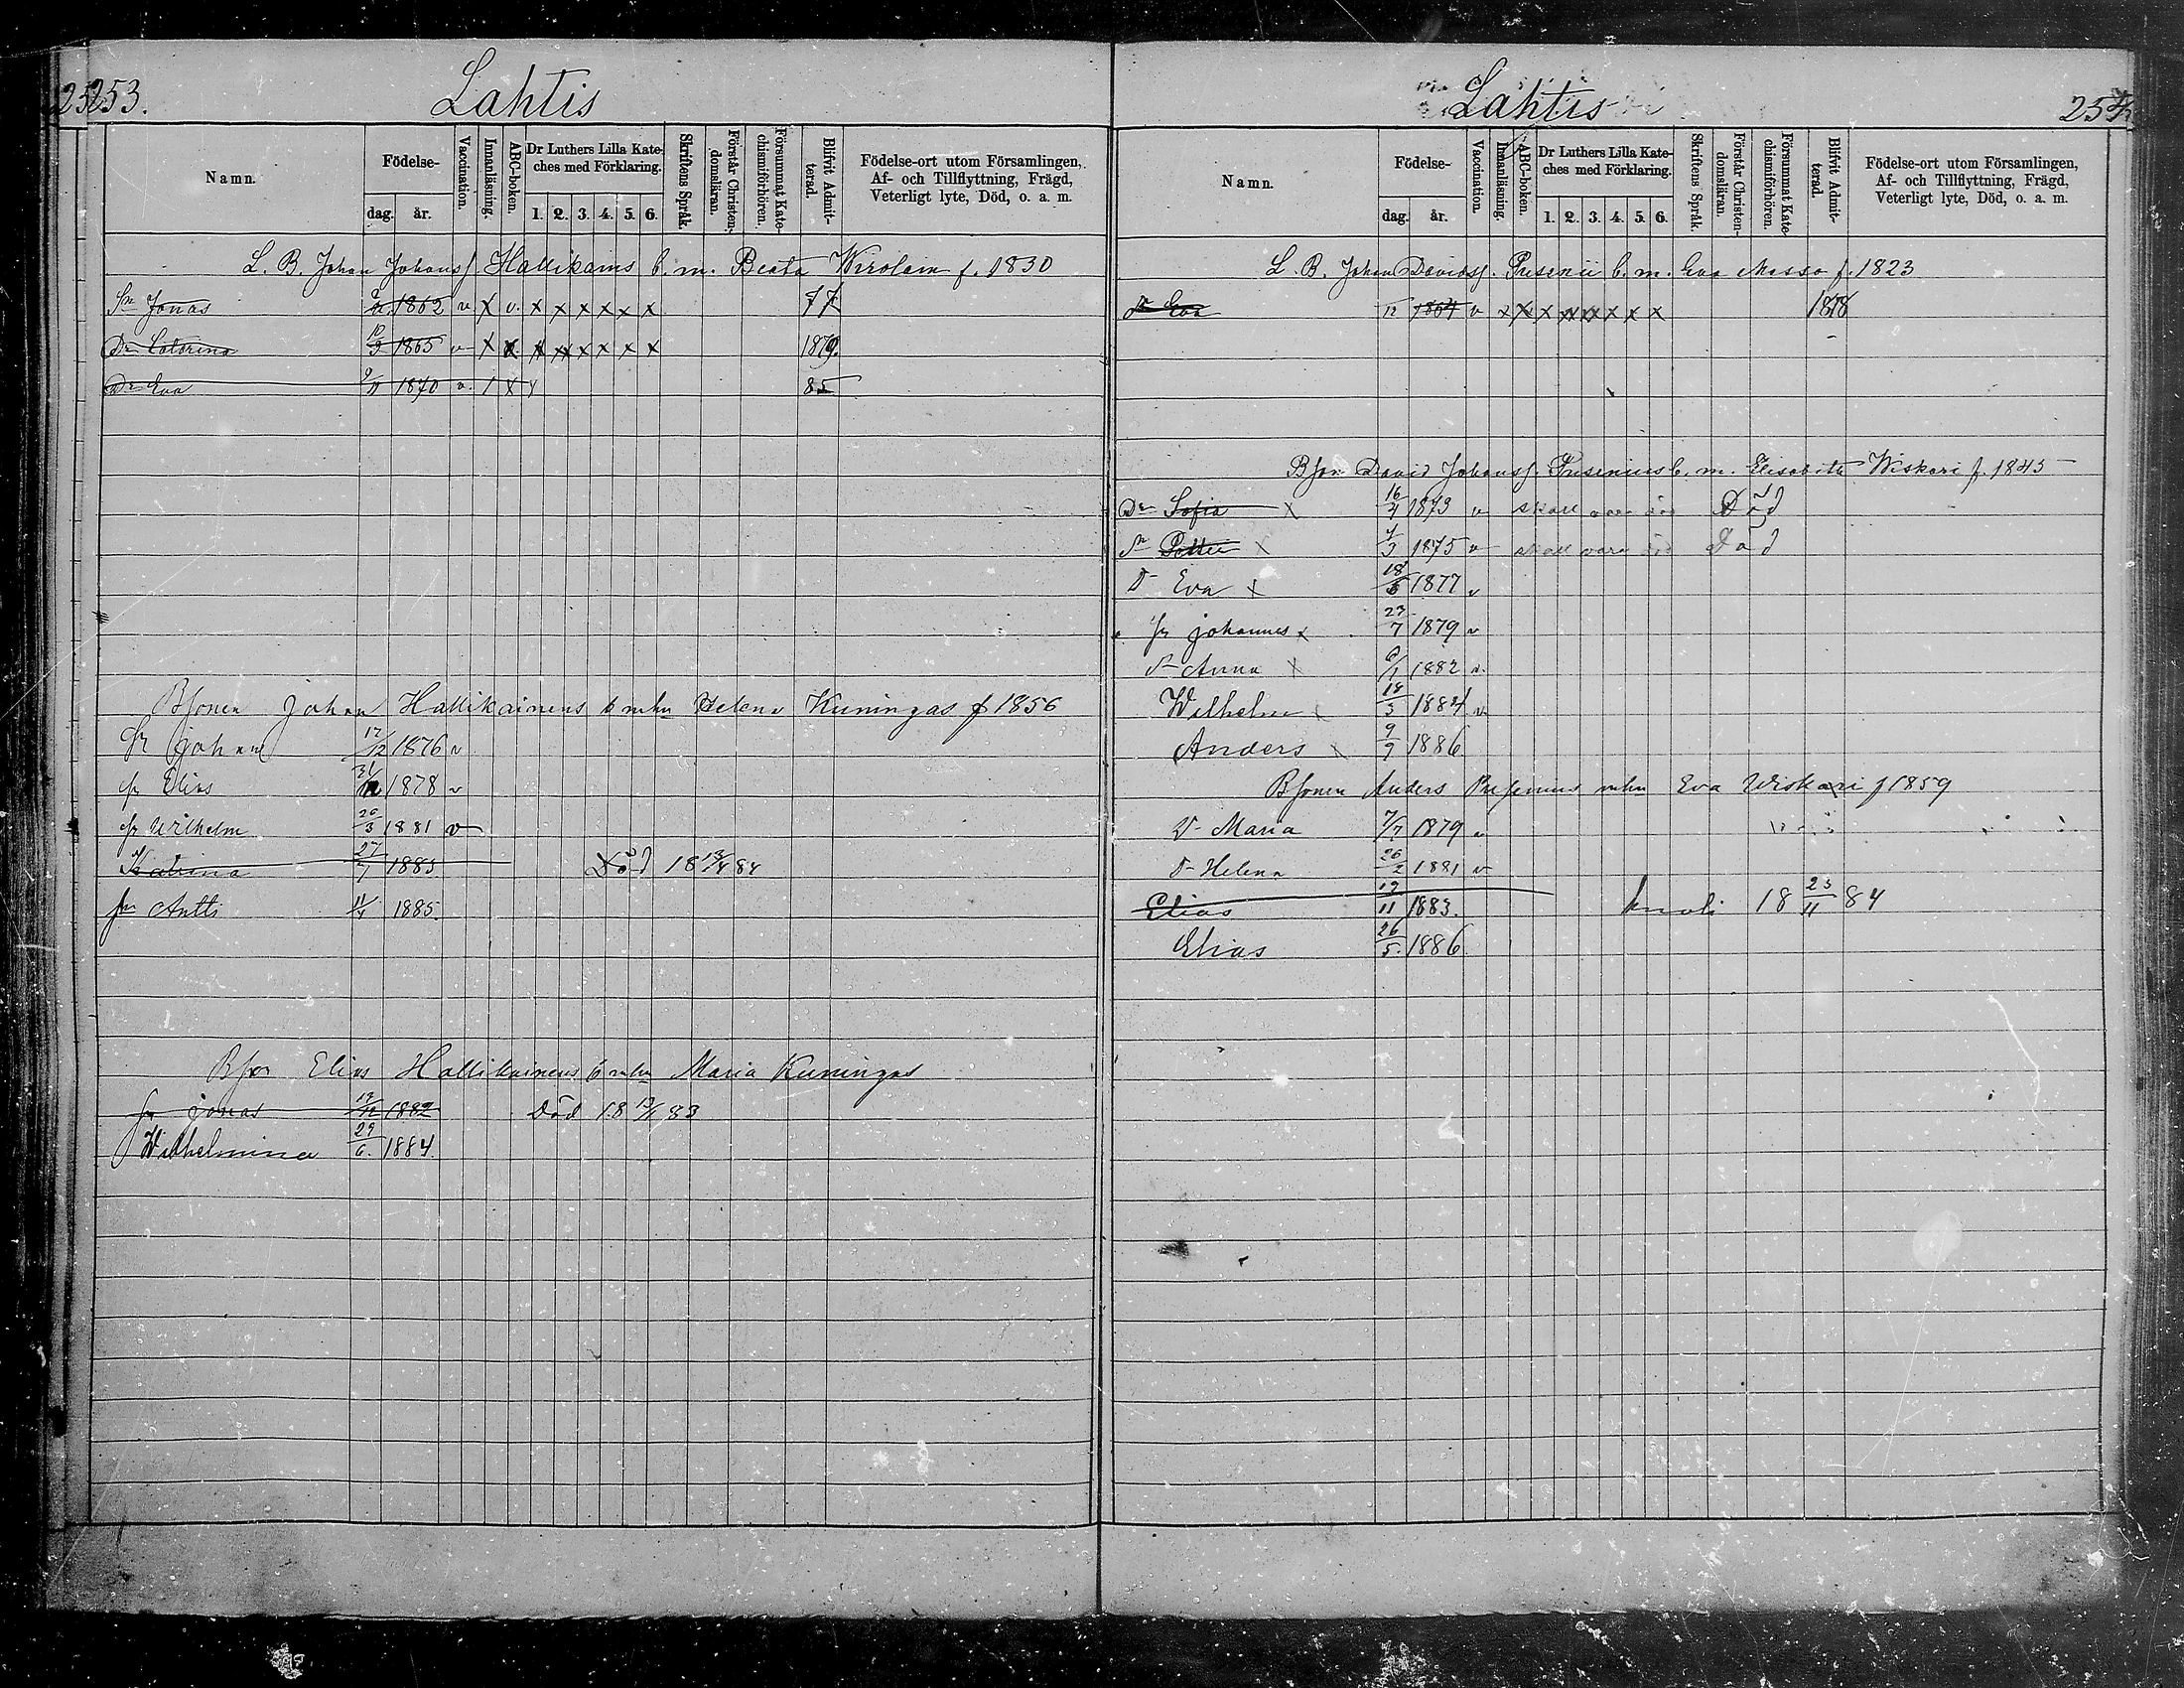 253.
Lahtis
Namn.
Födelse-
dag. år.
Vaccination.
Innanläsning.
ABC-boken.
Dr Luthers Lilla Kate-
ches med Förklaring.
1. 2. 3. 4. 5. 6.
Skriftens Språk.
Förstår Christen-
domsläran.
Försummat Kate-
chismiförhören.
Blifvit Admit-
terad.
Födelse-ort utom Församlingen,
Af- och Tillflyttning, Frägd,
Veterligt lyte, Död, o. a. m.
L. B. Johan Johanss. Hallikains b. m. Beata Wirolain f. 1830
Sn Jonas 1862 v x v. x x x x x x 77
Dr Catarina 10/3 1865 v x x x x x x x x 1879.
Dr Eva 9/11 1870 v. 85
Bsonen Johan Hallikainens b mhu Helena Kuningas f 1856
Johan 17/12 1876 v
Elias 1878 v
Wilhelm 20/3 1881 v
Katrina 27/7 1883 Död 18 84
Antti 11/4 1885.
Bson Elias Hallikainens b mhu Maria Kuningas
Jonas 19/12 1882 Död 18 83
Wilhelmina 29/6. 1884.
Lahtis
254
Namn.
Födelse-
dag. år.
Vaccination.
Innanläsning.
ABC-boken.
Dr Luthers Lilla Kate-
ches med Förklaring.
1. 2. 3. 4. 5. 6.
Skriftens Språk.
Förstår Christen-
domsläran.
Försummat Kate-
chismiförhören.
Blifvit Admit-
terad.
Födelse-ort utom Församlingen,
Af- och Tillflyttning, Frägd,
Veterligt lyte, Död, o. a. m.
L. B. Johan Davidss. Pusenii b. m. Eva Massa f. 1823
Eva 1864 v x x x x x x x x 1878
Bson David Johanss. Pusenius b. m. Elisabeth Wiskari f. 1845
Dr Sofia x 16/4 1873 v skall vara död Död
Sn Petter x 1875 v skall vara död Död
Eva x 18/5 1877 v
Johannes x 23/7 1879 v
Anna x 1882 v.
Wilhelm x 18/3 1884 v
Anders x 9/9 1886
Bsonen Anders Pusenius mhu Eva Wiskari f 1859
Maria 7/7 1879 v
Helena 26/2 1881 v
Elias 19/11 1883. kuoli 18 23/11 84
Elias 26/5. 1886